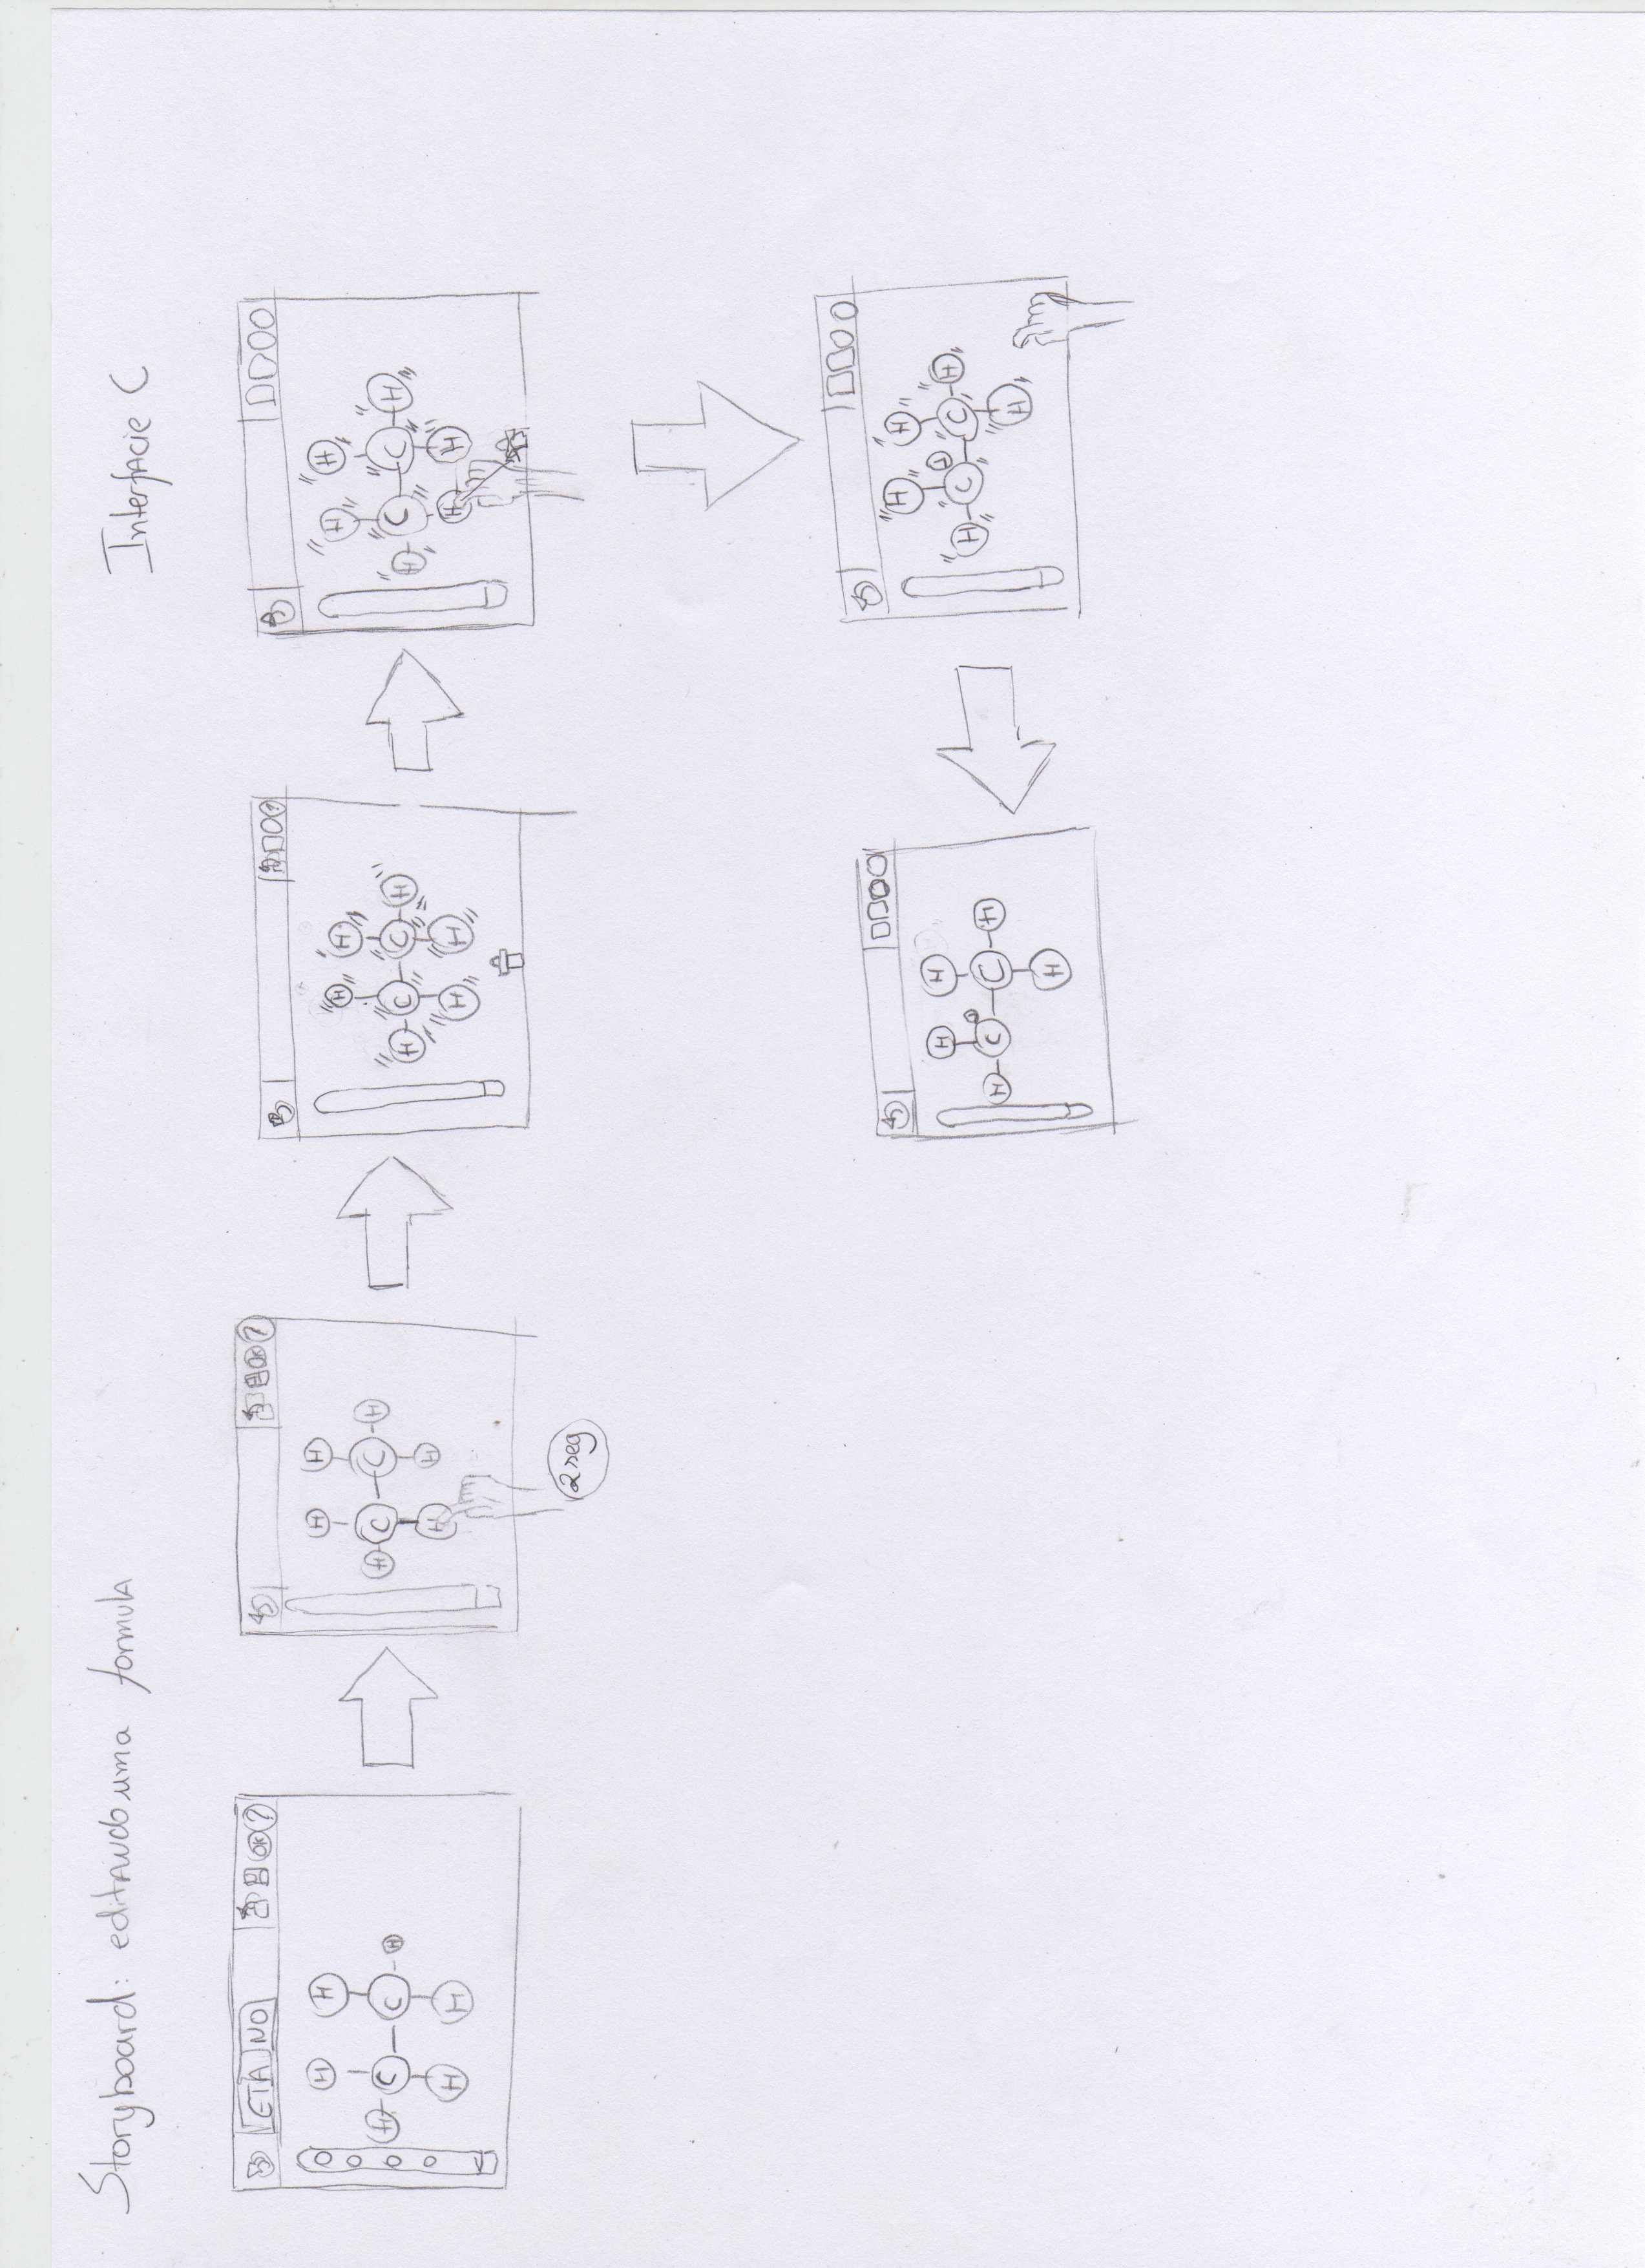 Storyboard: editando uma formula
Interfacie C
ETANO
?
H H
H C C H
H H
?
H H
H C C H
H H
2 seg
?
H H
H C C H
H H
H H
H C C H
H H
H H
H C C H
H
H H
H C C H
H